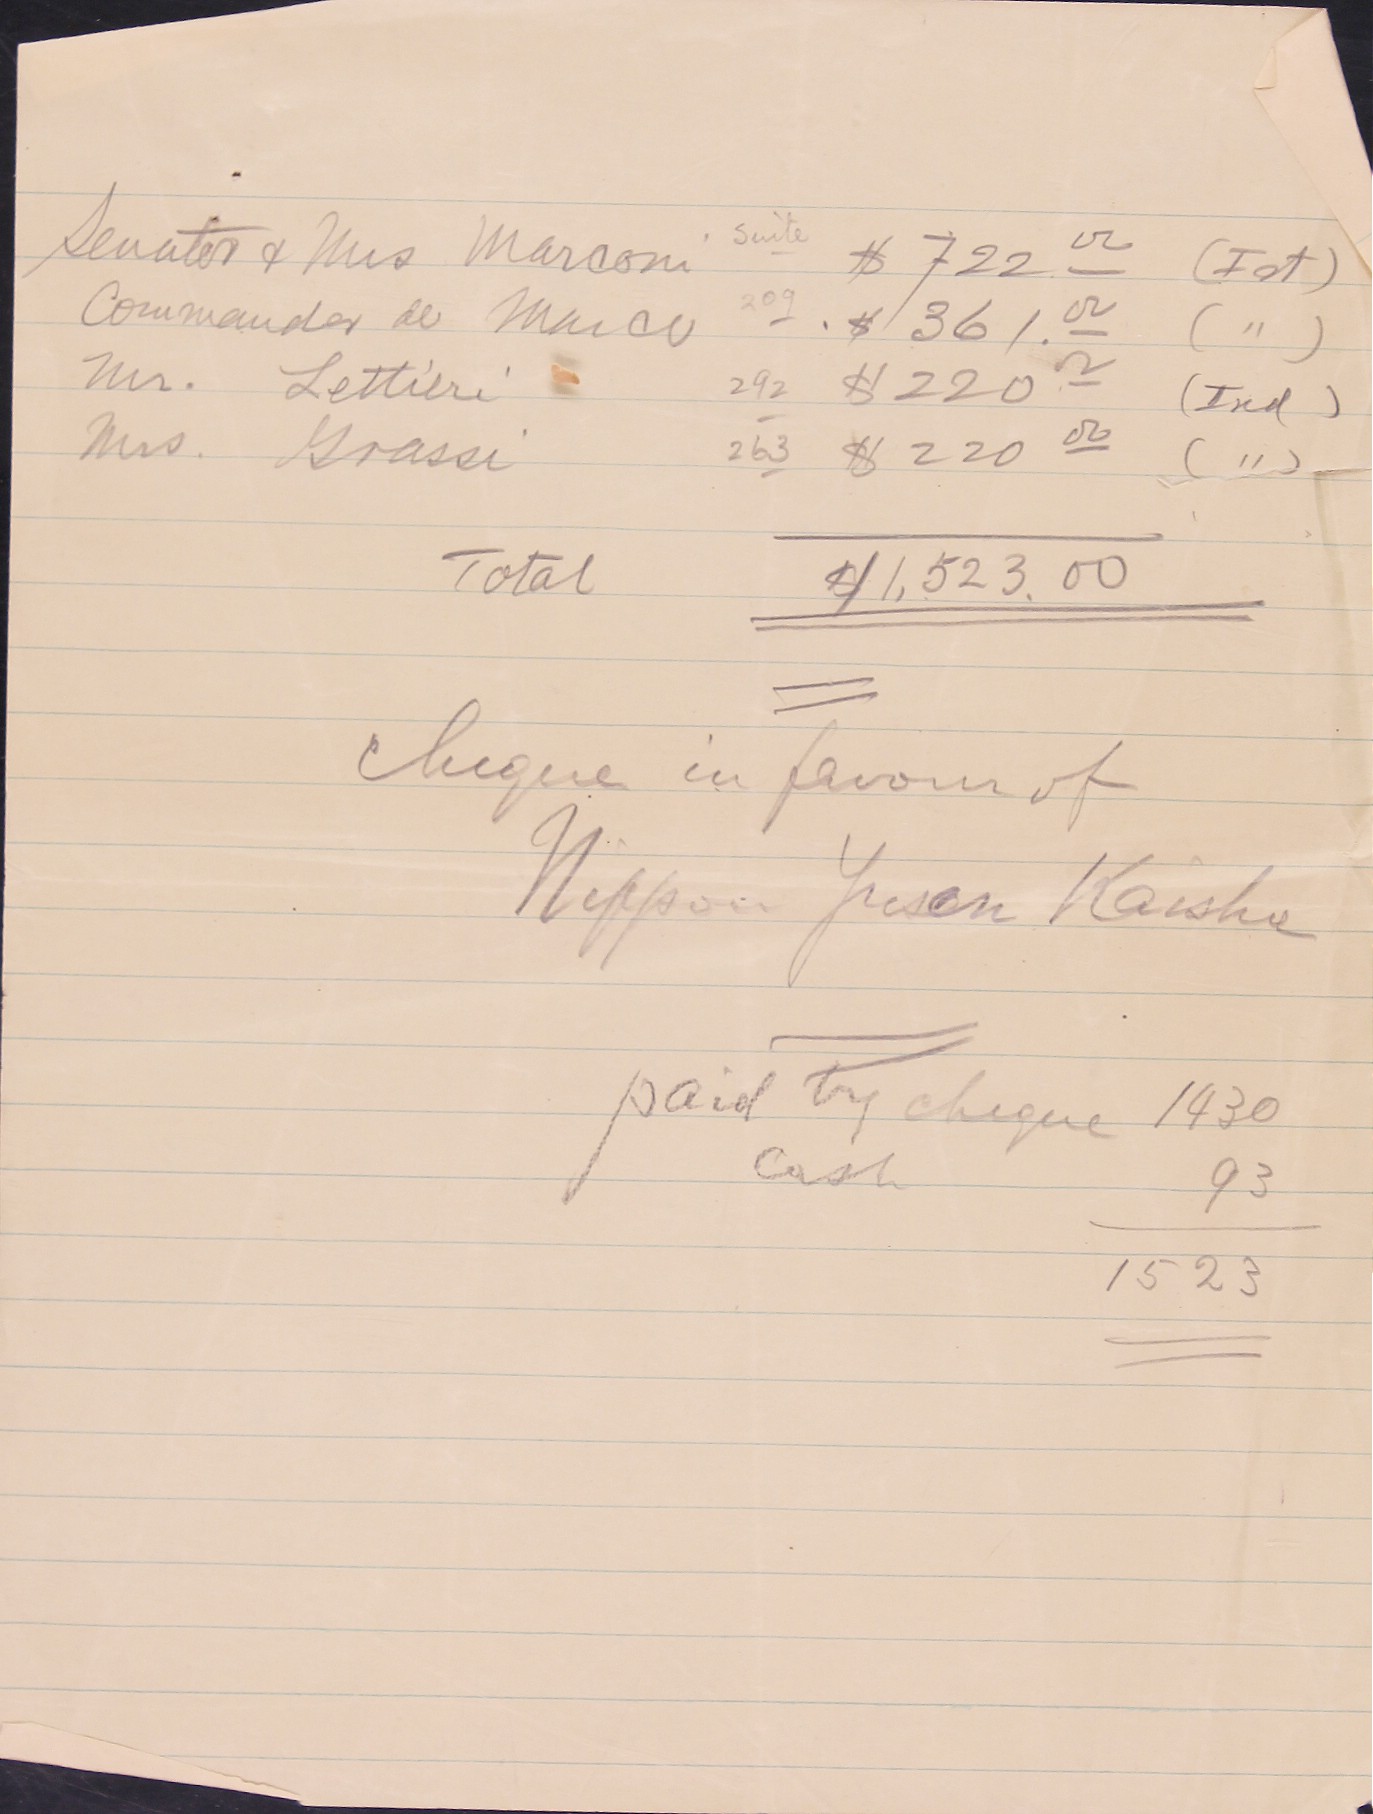 Senator & Mrs Marconi Suite $ 722.00 (Ist)
Commander de Marco 209 $ 361.00 ( " )
Mr. Lettieri 292 $ 220 00 (IInd )
Mrs. Grassi 263 $ 220 00 ( " )
Total $1,523.00
Cheque in favour of
Nippon Yusen Kaisha
paid by cheque 1430
cash 93
1523